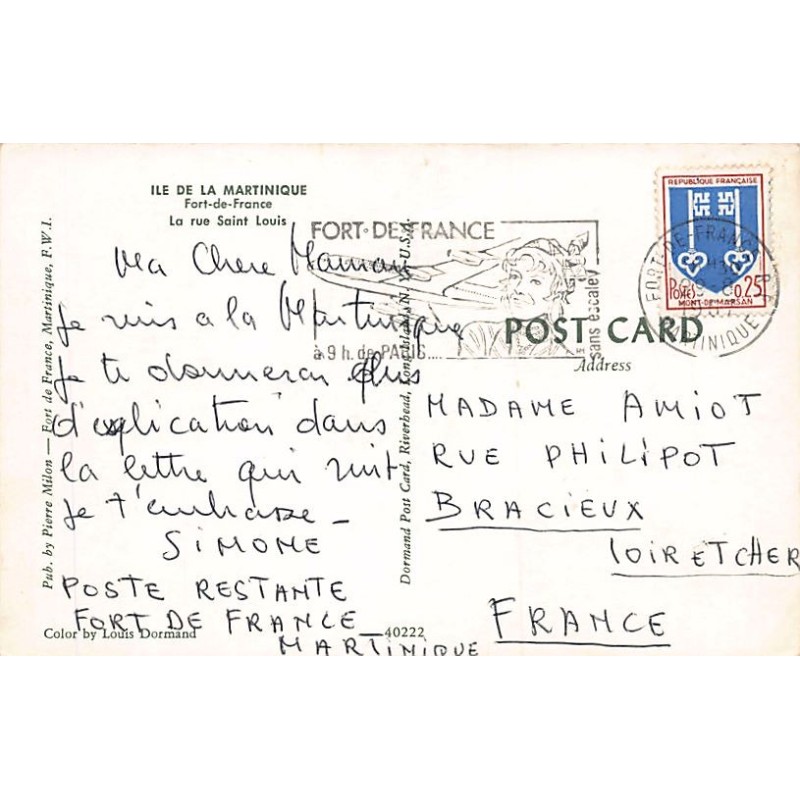 ILE DE LA MARTINIQUE
Fort-de-France
La rue Saint Louis
Ma Chere Maman
Je suis a la Martinique
Je te donnerai plus
d'explication dans
la lettre qui suit
Je t'embrasse _
SIMONE
POSTE RESTANTE
FORT DE FRANCE
MARTINIQUE
Color by Louis Dormand
40222
Pub. by Pierre Milon — Fort de France, Martinique, F.W.I.
Dormand Post Card, Riverhead, Long Island, N.Y. U.S.A.
FORT-DE-FRANCE
à 9 h. de PARIS....
sans escale
REPUBLIQUE FRANÇAISE
POSTES 0,25
MONT-DE-MARSAN
FORT-DE-FRANCE
MARTINIQUE
POST CARD
Address
MADAME AMIOT
RUE PHILIPOT
BRACIEUX
LOIR ET CHER
FRANCE